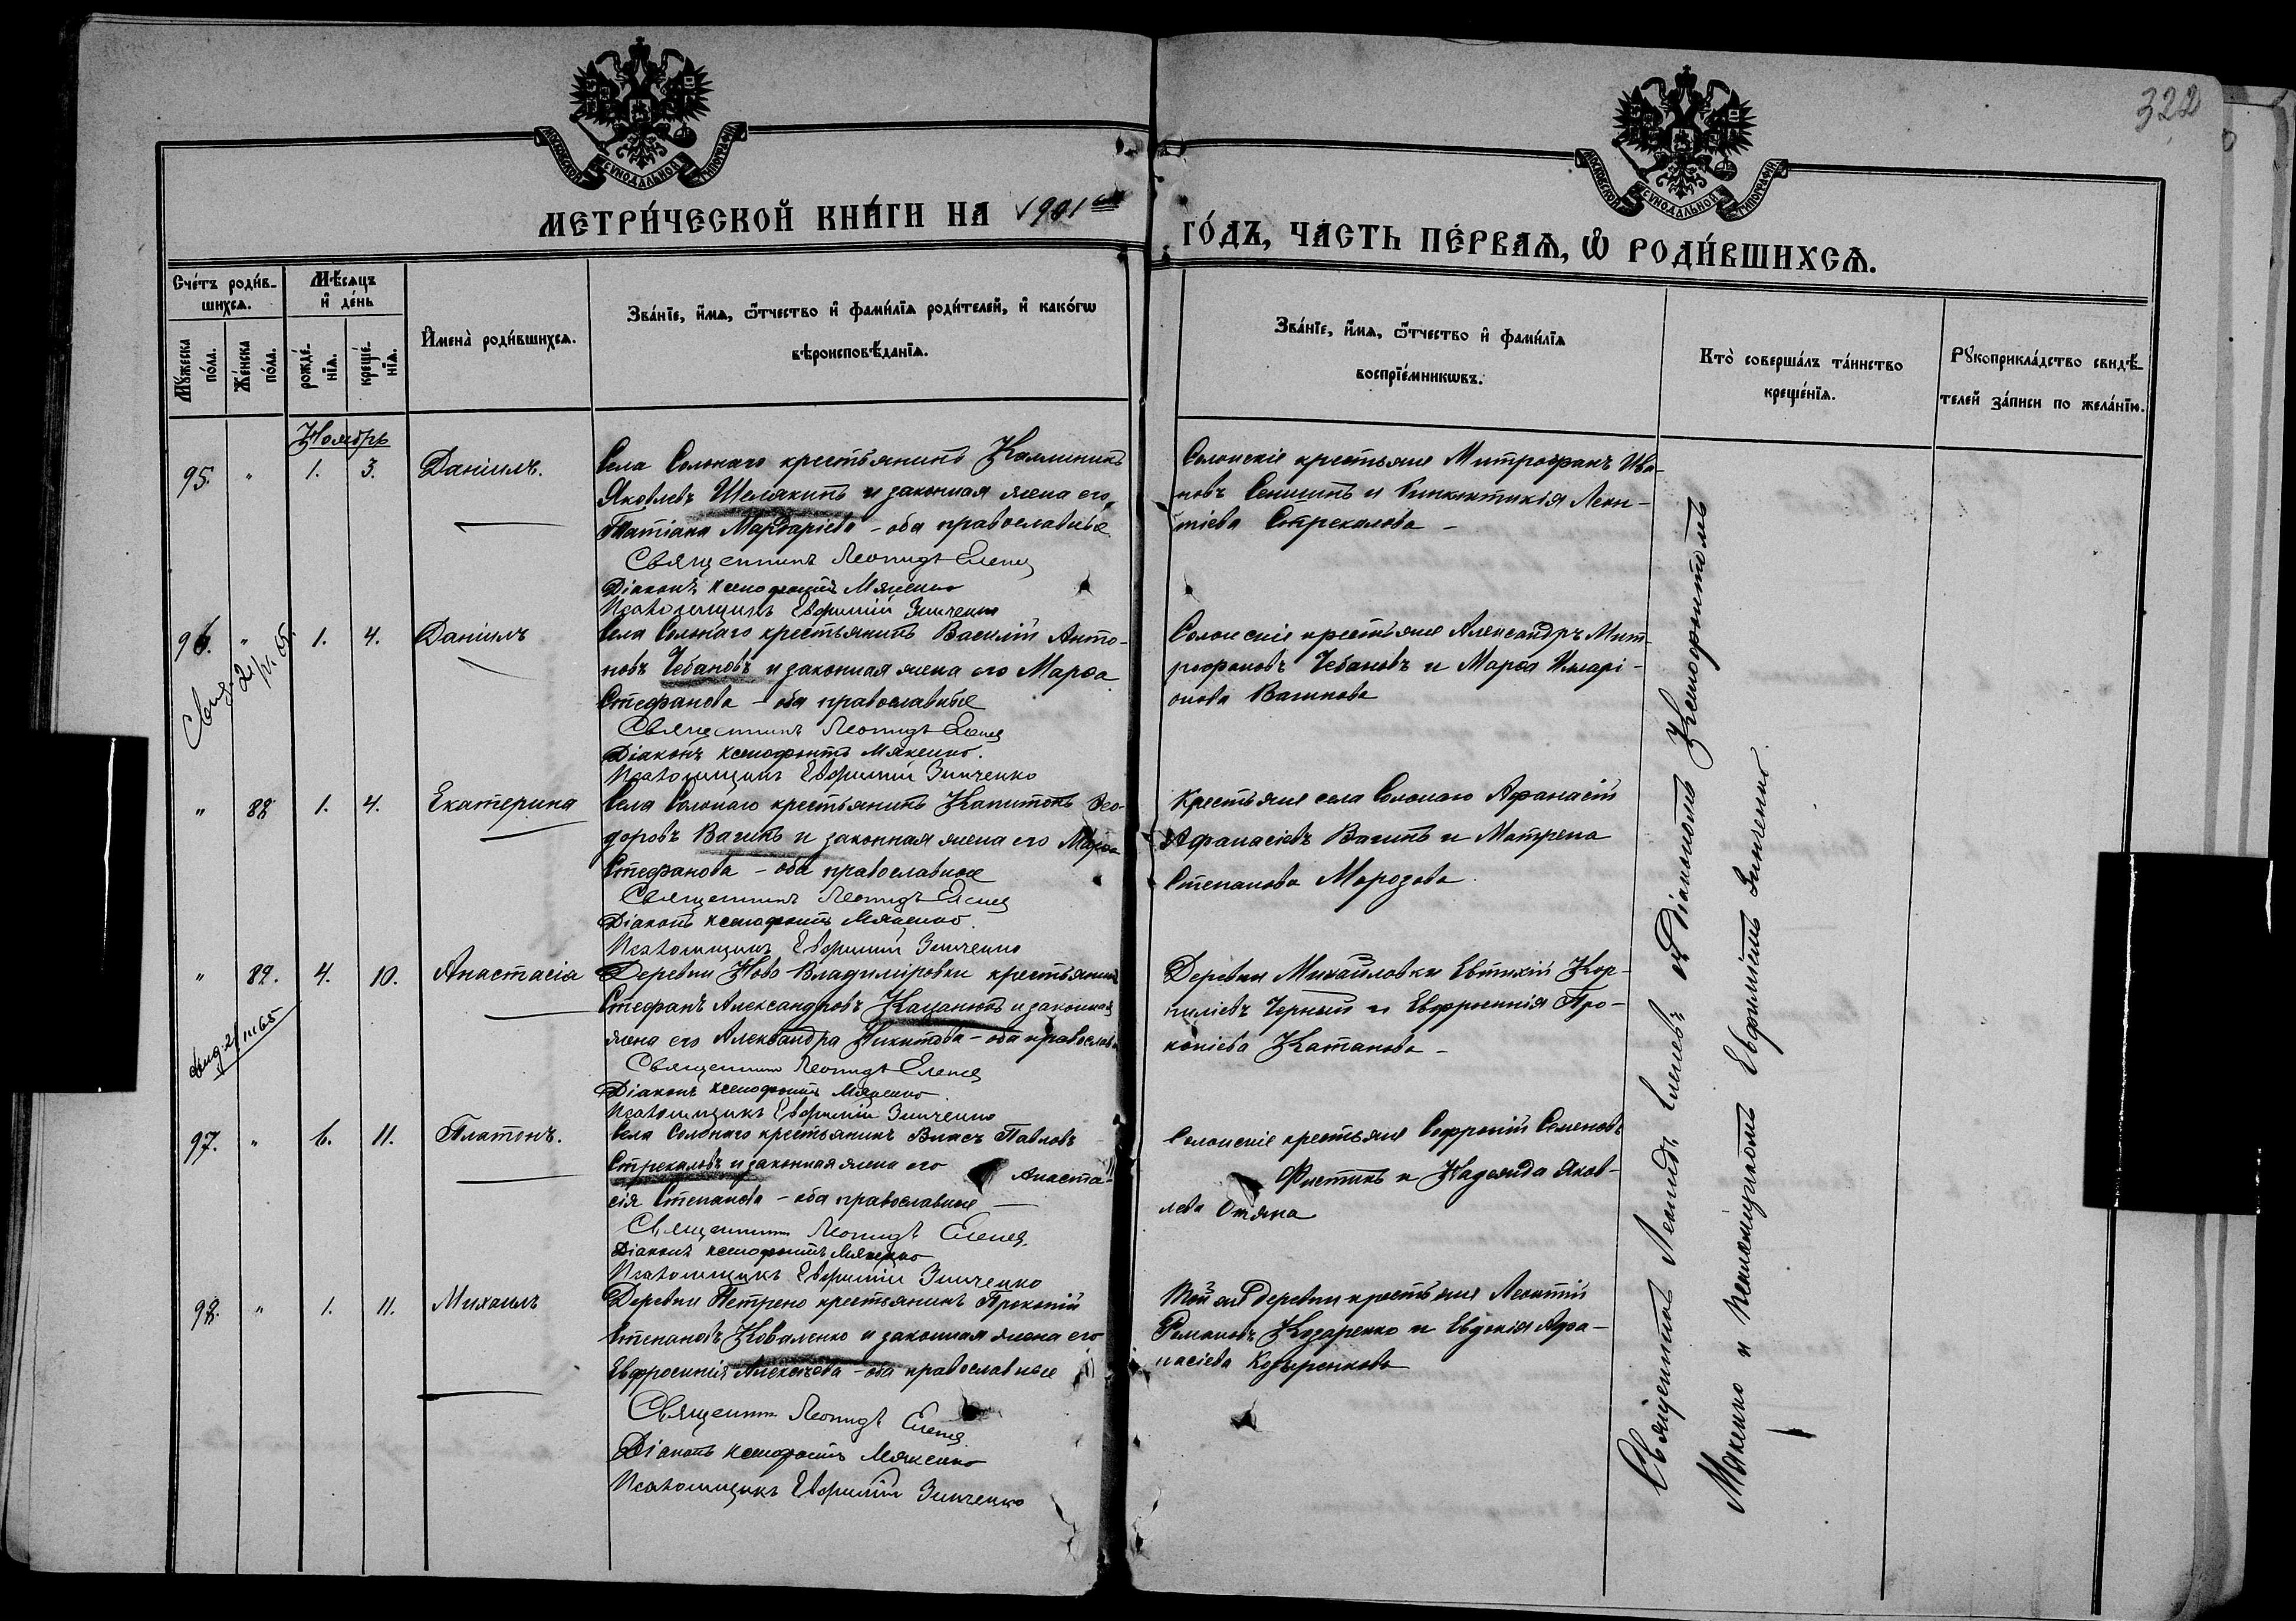 322
МОСКОВСКОЙ СѴНОДАЛЬНОЙ ТИПОГРАФІИ
МОСКОВСКОЙ СѴНОДАЛЬНОЙ ТИПОГРАФІИ
МЕТРИ́ЧЕСКОЙ КНИ́ГИ НА 1901
ГО́ДЪ, ЧАСТЬ ПЕ́РВАѦ, Ѡ҆ РОДИ́ВШИХСѦ.
Сче́тъ роди́в-
шихсѧ.
Мꙋ́жеска по́ла.
Же́нска по́ла.
Мѣ́сѧцъ
и҆ де́нь
рожде́-
нїѧ.
креще́-
нїѧ.
И҆мена̀ роди́вшихсѧ.
Зва́нїе, и҆́мѧ, ѻ҆́тчество и҆ фами́лїѧ роди́телей, и҆ како́гѡ
вѣроисповѣ́данїѧ.
Зва́нїе, и҆́мѧ, ѻ҆́тчество и҆ фами́лїѧ
воспрїе́мникѡвъ.
Кто̀ соверша́лъ та́инство
креще́нїѧ.
Рꙋкоприкла́дство свидѣ́-
телей за́писи по жела́нїю.
Ноябрь
95. " 1. 3. Даніилъ.
Села Солонаго крестьянинъ Каллиникъ
Яковлевъ Шелякинъ и законная жена его
Татіана Мардаріева – оба православные
Священникъ Леонидъ Еленев
Діаконъ Ксенофонтъ Мякенко
Псаломщикъ Евфимій Зинченко
Солонскіе крестьяне Митрофанъ Ива-
новъ Сенишинъ и Леон-
тіева Стрекалова –
96. " 1. 4. Даніилъ
Села Солонаго крестьянинъ Василій Анто-
новъ Чебановъ и законная жена его Марѳа
Стефанова – оба православные
Священникъ Леонидъ Еленев
Діаконъ Ксенофонтъ Мякенко.
Псаломщикъ Евфимій Зинченко
Солонскіе крестьяне Александръ Мит-
рофановъ Чебановъ и Марѳа Иларі-
онова Вагинова
" 88 1. 4. Екатерина
Села Солонаго крестьянинъ Капитонъ Ѳео-
доровъ Вагинъ и законная жена его Марѳа
Стефанова – оба православные
Священникъ Леонидъ Еленев
Діаконъ Ксенофонтъ Мякенко.
Псаломщикъ Евфимій Зинченко
Крестьяне села Солонаго Афанасій
Афанасіевъ Вагинъ и Матрена
Степанова Морозова
" 89. 4. 10. Анастасія
Деревни Ново Владиміровки крестьянинъ
Стефанъ Александровъ и законная
жена его Александра Никитова – оба православн
Священникъ Леонидъ Еленев
Діаконъ Ксенофонтъ Мякенко.
Псаломщикъ Евфимій Зинченко
Деревни Михайловки Евтихій Кор-
ниліевъ Черный и Евфросинія Про-
копіева Катанова –
97. " 6. 11. Платонъ.
Села Солонаго крестьянинъ Власъ Павловъ
Стрекаловъ и законная жена его Анаста-
сія Степанова – оба православные
Священникъ Леонидъ Еленев
Діаконъ Ксенофонтъ Мякенко
Псаломщикъ Евфимій Зинченко
Солонскіе крестьяне Софроній Семеновъ
Фистинъ и Надежда Яков-
лева
98. " 1. 11. Михаилъ
Деревни Петрено крестьянинъ Прокопій
Степановъ Коваленко и законная жена его
Евфросинія Алексѣева – оба православные
Священникъ Леонидъ Еленев
Діаконъ Ксенофонтъ Мякенко
Псаломщикъ Евфимій Зинченко
Той же деревни крестьяне Леонтій
Романовъ Козаренко и Евдокія Афа-
насіева Козыренкова
Священникъ Леонидъ Еленевъ съ Діакономъ Ксенофонтомъ
Мякенко и псаломщикомъ Евфиміемъ Зинченко.